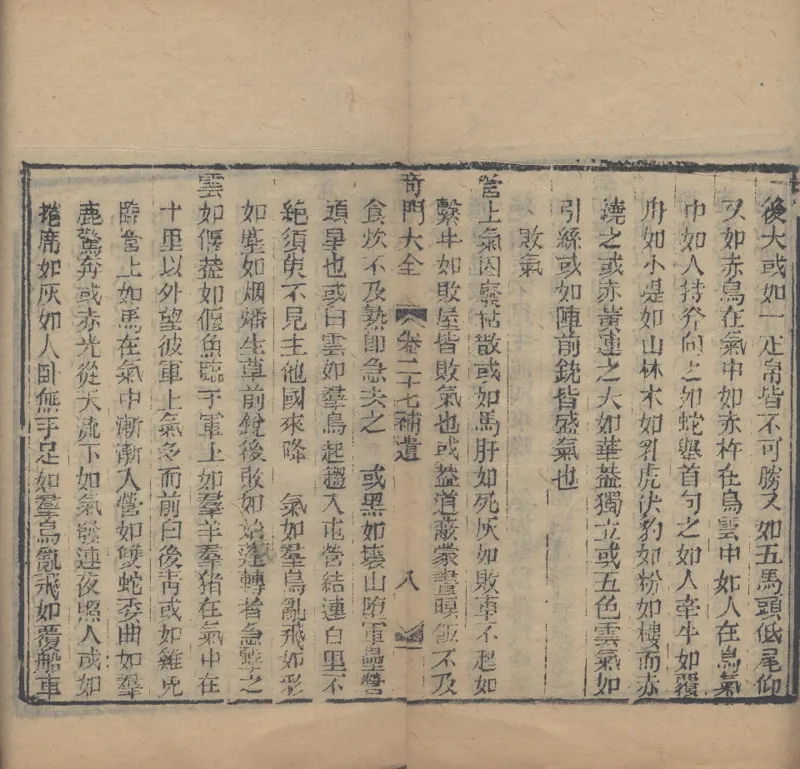 後大或如一疋帛皆不可勝又如五馬頭低尾仰
又如赤鳥在氣中如赤杵在烏雲中如人在烏氣
中如人持斧向之如蛇舉首向之如人牽牛如覆
舟如小堤如山林木如乳虎伏豹如粉如樓而赤
繞之或赤黃連之大如華葢獨立或五色雲氣如
引絲或如陣前銳皆盛氣也
敗氣
營上氣因廢枯散或如馬肝如死灰如敗車不起如
繫牛如敗屋皆敗氣也或葢道蔽蒙晝暝飯不及
奇門大全 卷二十七補遺 八
食炊不及熟即急去之 或黑如壞山墮軍壘營
頭星也或白雲如羣鳥起趨入屯營結連百里不
絶須臾不見主他國來降 氣如羣鳥亂飛如彩
如塵如烟燔生草前銳後敗如 蓬轉皆急擊之
雲如偃葢如偃魚臨于軍上如羣羊羣猪在氣中在
十里以外望彼軍上氣多而前白後靑或如雞兎
臨營上如馬在氣中漸漸入營如雙蛇委曲如羣
鹿驚奔或赤光從天流下如氣發連夜照人或如
捲席如灰如人卧無手足如羣鳥亂飛如覆船車